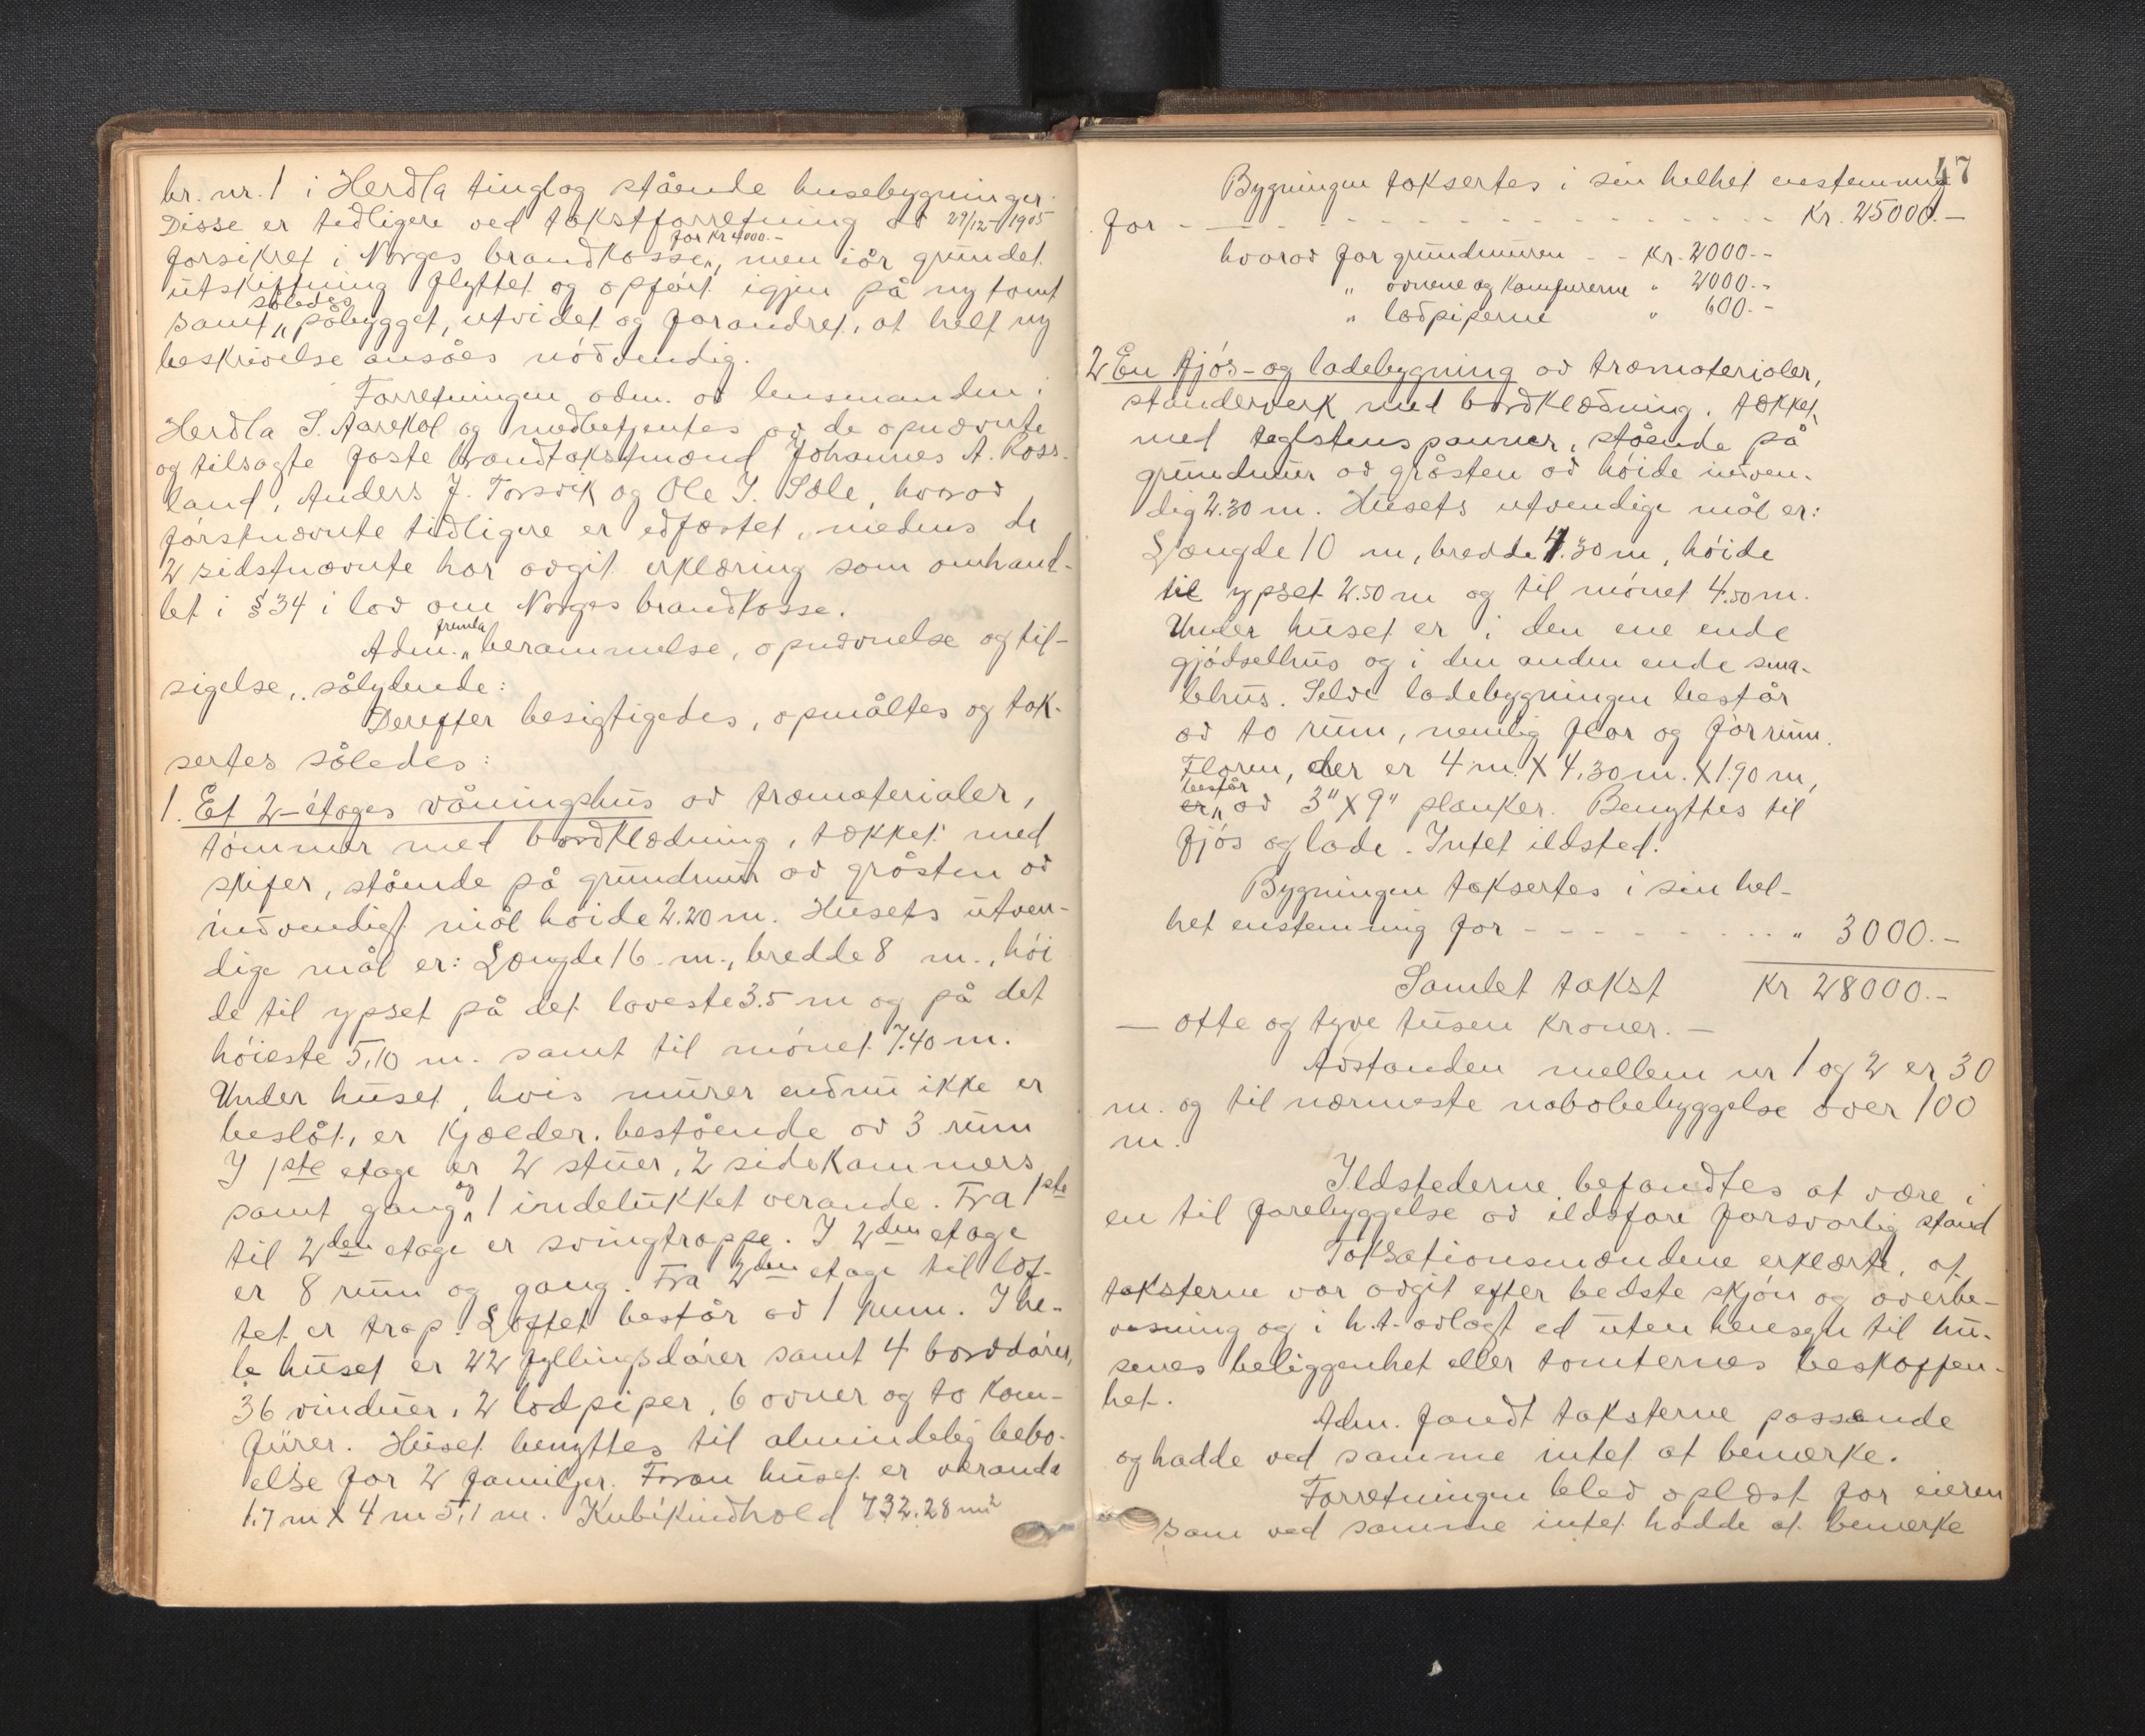 br. nr. 1 i Herdla tinglag stående husebygninger.
Disse er tidligere ved takstforretning av 27/12-1905
forsikret i Norges brandkasse for Kr 4000.-, men iår grundet
utskiftning flyttet og opført igjen på ny tomt
samt således påbygget, utvidet og forandret, at helt ny
beskrivelse ansåes nødvendig.
Forretningen adm. av lensmanden i
Herdla S. Aarekol og medbetjentes av de opnævnte
og tilsagte faste brandtakstmænd Johannes A. Ross-
land, Anders J. Torsvik og Ole J. Sæle, hvorav
førstnævnte tidligere er edfæstet, medens de
2 sidstnævnte har avgit erklæring som omhand-
let i § 34 i lov om Norges brandkasse.
Adm. fremla berammelse, opnævnelse og til-
sigelse, sålydende:
Derefter besigtigedes, opmåltes og tak-
sertes således:
1. Et 2-etages våningshus av træmaterialer,
tømmer med bordklædning, tækket med
skifer, stående på grundmur av gråsten av
indvendigt mål høide 2.20 m. Husets utven-
dige mål er: Længde 16 m., bredde 8 m., høi
de til ypset på det laveste 3.5 m og på det
høieste 5,10 m. samt til mønet 7.40 m.
Under huset, hvis murer endnu ikke er
beslåt, er kjælder, bestående av 3 rum
I 1ste etage er 2 stuer, 2 sidekammers
samt gang og 1 indelukket verande. Fra 1ste
til 2den etage er svingtrappe. I 2den etage
er 8 rum og gang. Fra 2den etage til lof-
tet er trap. Loftet består av 1 rum. I he-
le huset er 22 fyllingsdører samt 4 borddører,
36 vinduer, 2 lodpiper, 6 ovner og to kom-
fürer. Huset benyttes til almindelig bebo-
else for 2 familjer. Foran huset er veranda
1.7 m X 4 m 5,1 m. Kubikindhold 732.28 m2
47
Bygningen taksertes i sin helhet enstemmig
for - - - - - Kr. 25000.-
hvorav for grundmuren - - Kr. 2000.-
" ovnene og komfurerne " 2000.-
" lodpiperne " 600.-
2 En fjøs- og ladebygning av træmaterialer,
standerverk med bordklædning, tækket
med teglstenspanner, stående på
grundmur av gråsten av høide indven-
dig 2.30 m. Husets utvendige mål er:
Længde 10 m, bredde 4.30 m, høide
til ypset 2.50 m og til mønet 4.50 m.
Under huset er i den ene ende
gjødselhus og i den anden ende sma-
lehus. Selve ladebygningen består
av to rum, nemlig flor og forrum.
Floren, der er 4 m. X 4,30 m. X 1.90 m,
er består av 3" X 9" planker. Benyttes til
fjøs og lade. Intet ildsted.
Bygningen taksertes i sin hel-
het enstemmig for - - - - - " 3000.-
Samlet takst Kr 28000.-
— otte og tyve tusen kroner. —
Avstanden mellem nr 1 og 2 er 30
m. og til nærmeste nabobebyggelse over 100
m.
Ildstederne befandtes at være i
en til forebyggelse av ildsfare forsvarlig stand
Taksationsmændene erklærte, at
taksterne var avgit efter bedste skjøn og overbe-
visning og i h.t. avlagt ed uten hensyn til hu-
senes beliggenhet eller tomternes beskaffen-
het.
Adm. fandt taksterne passende
og hadde ved samme intet at bemerke.
Forretningen blev oplæst for eieren
som ved samme intet hadde at bemerke